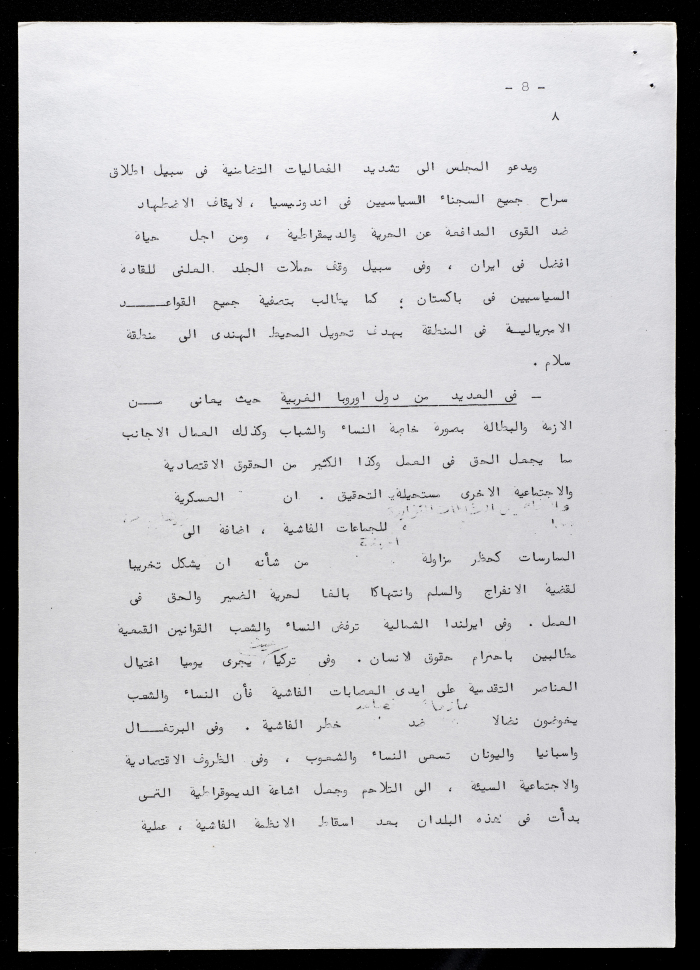 - 8 -
٨
ويدعو المجلس الى تشديد الفعاليات التضامنية فى سبيل اطلاق
سراح جميع السجناء السياسيين فى اندونيسيا ، لايقاف الاضطهاد
ضد القوى المدافعة عن الحرية والديمقراطية ، ومن اجل حياة
افضل فى ايران ، وفى سبيل وقف حملات الجلد العلنى للقادة
السياسيين فى باكستان ؛ كما يطالب بتصفية جميع القواعـــــد
الامبريالية فى المنطقة بهدف تحويل المحيط الهندى الى منطقة
سلام .
- فى العديد من دول اوروبا الغربية حيث يعانى مــن
الازمة والبطالة بصورة خاصة النساء والشباب وكذلك العمال الاجانب
مما يجعل الحق فى العمل وكذا الكثير من الحقوق الاقتصادية
والاجتماعية الاخرى مستحيلة التحقيق . ان العسكرية
للجماعات الفاشية ، اضافة الى
الممارسات كحظر مزاولة من شأنه ان يشكل تخريبا
لقضية الانفراج والسلم وانتهاكا بالغا لحرية الضمير والحق فى
العمل . وفى ايرلندا الشمالية ترفض النساء والشعب القوانين القمعية
مطالبين باحترام حقوق لانسان . وفى تركيا يجرى يوميا اغتيال
العناصر التقدمية على ايدى العصابات الفاشية فأن النساء والشعب
يخوضون نضالا ضد خطر الفاشية . وفى البرتغــال
واسبانيا واليونان تسعى النساء والشعوب ، وفى الظروف الاقتصادية
والاجتماعية السيئة ، الى التلاحم وجعل اشاعة الديموقراطية التــى
بدأت فى هذه البلدان بعد اسقاط الانظمة الفاشية ، عملية